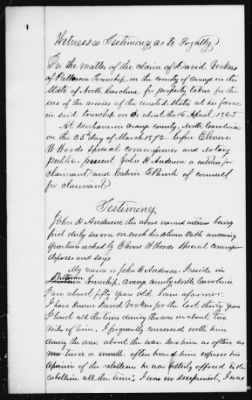 Witnesses Testimony as to Loyalty
In the matter of the claim of David
of Township, in the county of Orange in the
State of North Carolina for property taken for the
use of the armies of the United States at his farm
in said township on or about the 16 April 1865
At Durham in Orange county, North Carolina
on the 25 day of March 1872 before Elmore
W Woods special commissioner and Notary
public, present John H Anderson a witness for
claimant and Calvin E Parish of counsel
for claimant
Testimony
John H Anderson the above named witness being
first duly sworn on such his solemn Oath answering
questions asked by Elmore W Woods special commissioner
deposes and says
My name is John H Anderson I reside in
Township Orange county North Carolina
I am about fifty years old I am a farmer
I have known David for the last thirty years
I lived all the time during the war in about two
miles of him, I frequently conversed with him
during the war about the war. I as often as
a month often heard him express his
opinion of the rebellion he was bitterly opposed to the
rebellion all the time, I was in I was